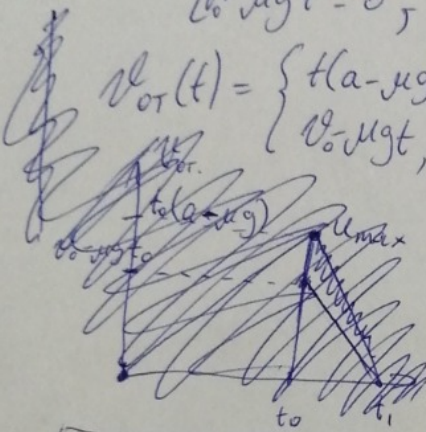 v₀ - μgt = 0,
v_от(t) = { t(a - μg
v₀ - μgt,
v_от.
t₀(a - μg)
v₀ - μgt₀
u_max
t₀
t₁